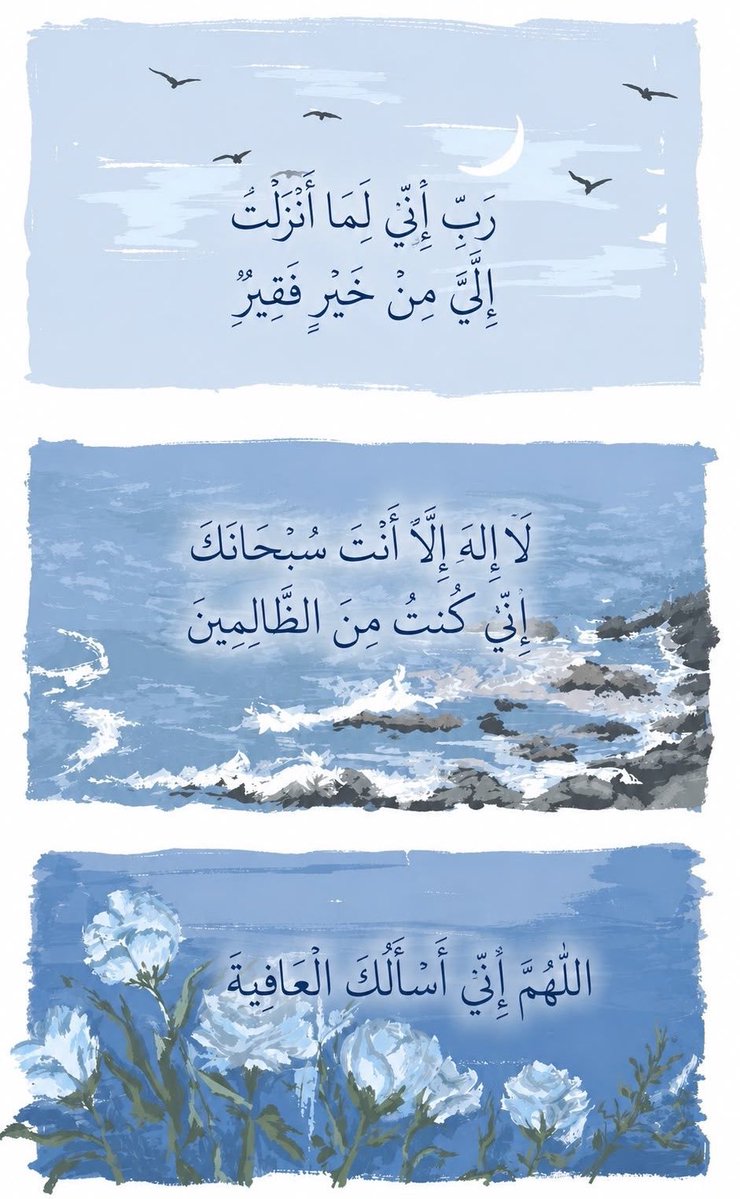 رَبِّ إِنِّي لِمَا أَنْزَلْتَ
إِلَيَّ مِنْ خَيْرٍ فَقِيرٌ
لَا إِلهَ إِلَّا أَنْتَ سُبْحَانَكَ
إِنِّي كُنتُ مِنَ الظَّالِمِينَ
اللَّهُمَّ إِنِّي أَسْأَلُكَ الْعَافِيةَ